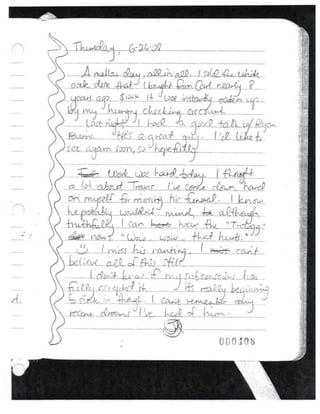 Thursday, 6-26-08
A mellow day, all in all. I sold the white
oak desk that I bought from Carl nearly 8
years ago. It was instantly eaten up
by my hungry checking account.
Last night I had a good talk w/ Ryan
He's a great guy. I'd like to
see again soon, so hopefully
Work was hard today. I thought
a lot about Trane. I've come down hard
on myself for missing his funeral. I know
he probably wouldn't mind, although
truthfully I can hear the "T-dogg"
now: "Wow... wow... that hurts."
I miss his ranting. I can't
believe all of this still.
I don't know if my subconscious has
fully accepted it. It's really beginning
to sink in though. I can't remember any
recent dreams I've had of him.
000408